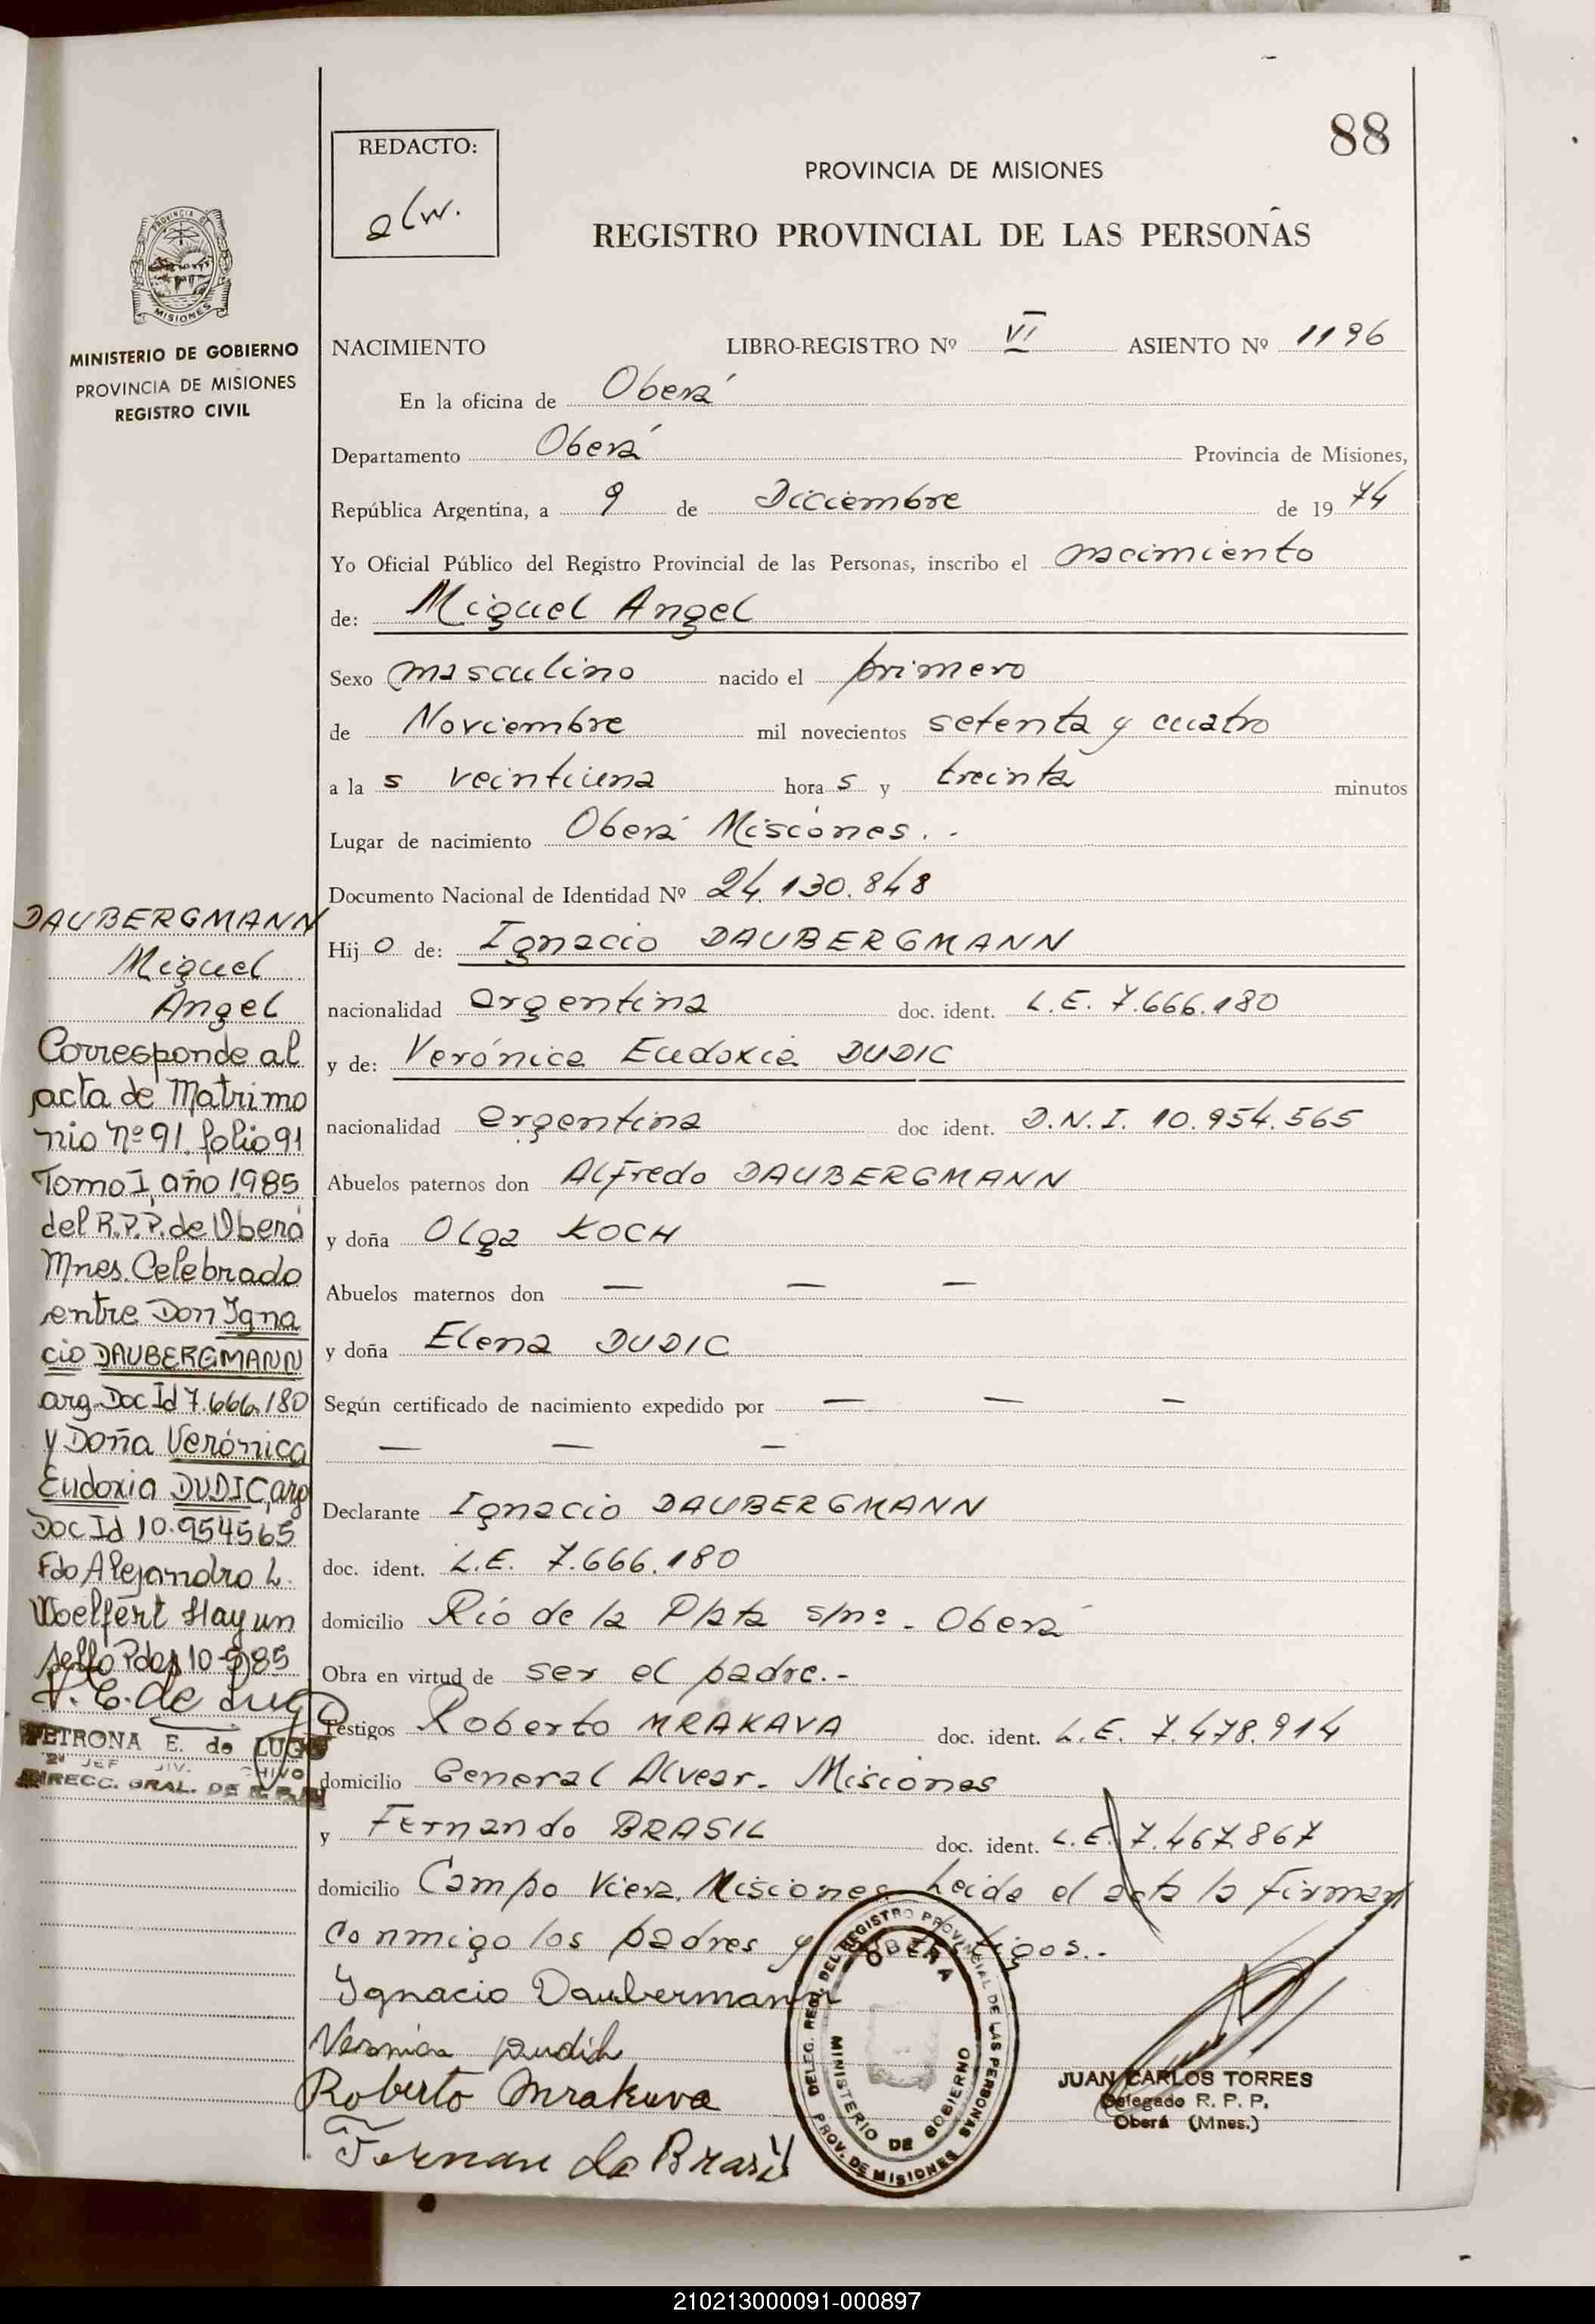 88
REDACTO:
alw.
PROVINCIA DE MISIONES
REGISTRO PROVINCIAL DE LAS PERSONAS
PROVINCIA DE
MISIONES
MINISTERIO DE GOBIERNO
PROVINCIA DE MISIONES
REGISTRO CIVIL
NACIMIENTO LIBRO-REGISTRO Nº VI ASIENTO Nº 1196
En la oficina de Oberá
Departamento Oberá Provincia de Misiones,
República Argentina, a 9 de Diciembre de 19 74
Yo Oficial Público del Registro Provincial de las Personas, inscribo el nacimiento
de: Miguel Angel
Sexo masculino nacido el primero
de Noviembre mil novecientos setenta y cuatro
a la s veintiuna hora s y treinta minutos
Lugar de nacimiento Oberá Misiones. -
Documento Nacional de Identidad Nº 24.130.848
Hij o de: Ignacio DAUBERGMANN
nacionalidad argentina doc. ident. L.E. 7.666.180
y de: Verónica Eudoxia DUDIC
nacionalidad argentina doc ident. D.N.I. 10.954.565
Abuelos paternos don Alfredo DAUBERGMANN
y doña Olga KOCH
Abuelos maternos don — — —
y doña Elena DUDIC
Según certificado de nacimiento expedido por — — —
— — —
Declarante Ignacio DAUBERGMANN
doc. ident. L.E. 7.666.180
domicilio Río de la Plata s/nº - Oberá
Obra en virtud de ser el padre.-
Testigos Roberto MRAKAVA doc. ident. L.E. 7.478.914
domicilio General Alvear. Misiones
y Fernando BRASIL doc. ident. L.E. 7.467.867
domicilio Campo Viera. Misiones Leida el acta la firman
conmigo los padres y testigos.-
Ignacio Daubermann
Roberto Mrakava
Fernando Brasil
DELEG. REG. DEL REGISTRO PROVINCIAL DE LAS PERSONAS
OBERA
MINISTERIO DE GOBIERNO
PROV. DE MISIONES
JUAN CARLOS TORRES
Delegado R. P. P.
Oberá (Mnes.)
DAUBERGMANN
Miguel
Angel
Corresponde al
acta de Matrimo
nio Nº 91 folio 91
Tomo I, año 1985
del R.P.P. de Oberá
Mnes. Celebrado
entre Don Igna
cio DAUBERGMANN
arg. Doc Id 7.666.180
y Doña Verónica
Eudoxia DUDIC, arg
Doc Id 10.954565
Fdo Alejandro L.
Woelfert Hay un
sello Pdas 10-9-85
P. E. de Lugo
PETRONA E. de LUGO
2º JEF DIV. ARCHIVO
DIRECC. GRAL. DE R. P. P.
210213000091-000897